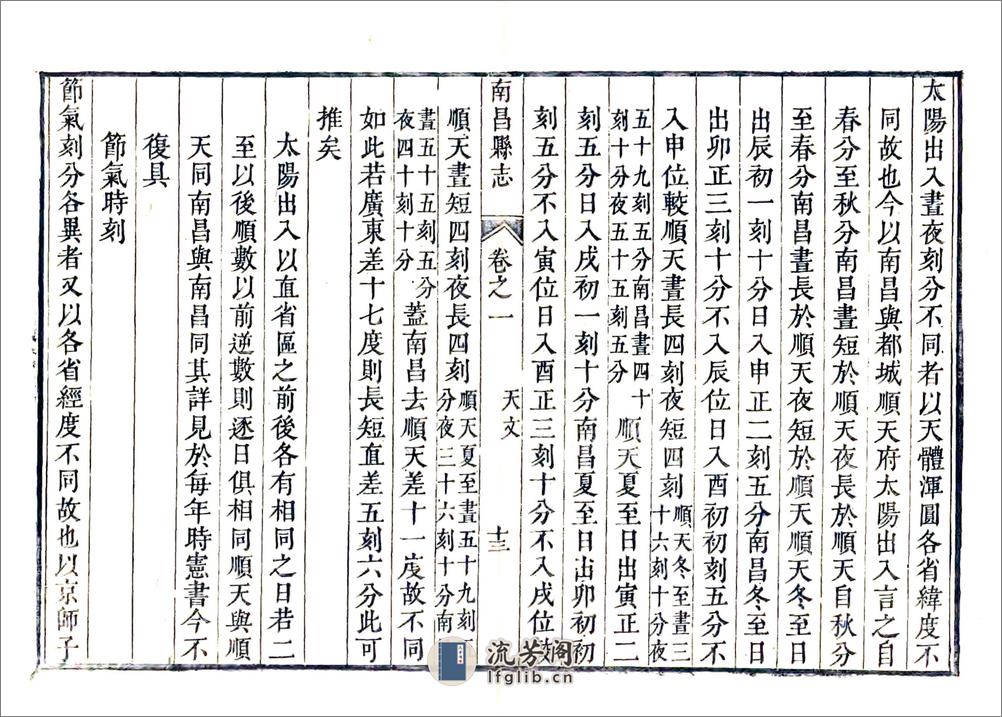 太陽出入晝夜刻分不同者以天體渾圓各省緯度不
同故也今以南昌與都城順天府太陽出入言之自
春分至秋分南昌晝短於順天夜長於順天自秋分
至春分南昌晝長於順天夜短於順天順天冬至日
出辰初一刻十分日入申正二刻五分南昌冬至日
出卯正三刻十分不入辰位日入酉初初刻五分不
入申位較順天晝長四刻夜短四刻順天冬至晝三十六刻十分夜
五十九刻五分南昌晝四十刻十分夜五十五刻五分順天夏至日出寅正二
刻五分日入戌初一刻十分南昌夏至日出卯初初
刻五分不入寅位日入酉正三刻十分不入戌位較
南昌縣志 卷之一 天文 十三
順天晝短四刻夜長四刻順天夏至晝五十九刻五分夜三十六刻十分南
晝五十五刻五分夜四十刻十分蓋南昌去順天差十一度故不同
如此若廣東差十七度則長短直差五刻六分此可
推矣
太陽出入以直省區之前後各有相同之日若二
至以後順數以前逆數則逐日俱相同順天與順
天同南昌與南昌同其詳見於每年時憲書今不
復具
節氣時刻
節氣刻分各異者又以各省經度不同故也以京師子
流芳閣
lfglib.cn